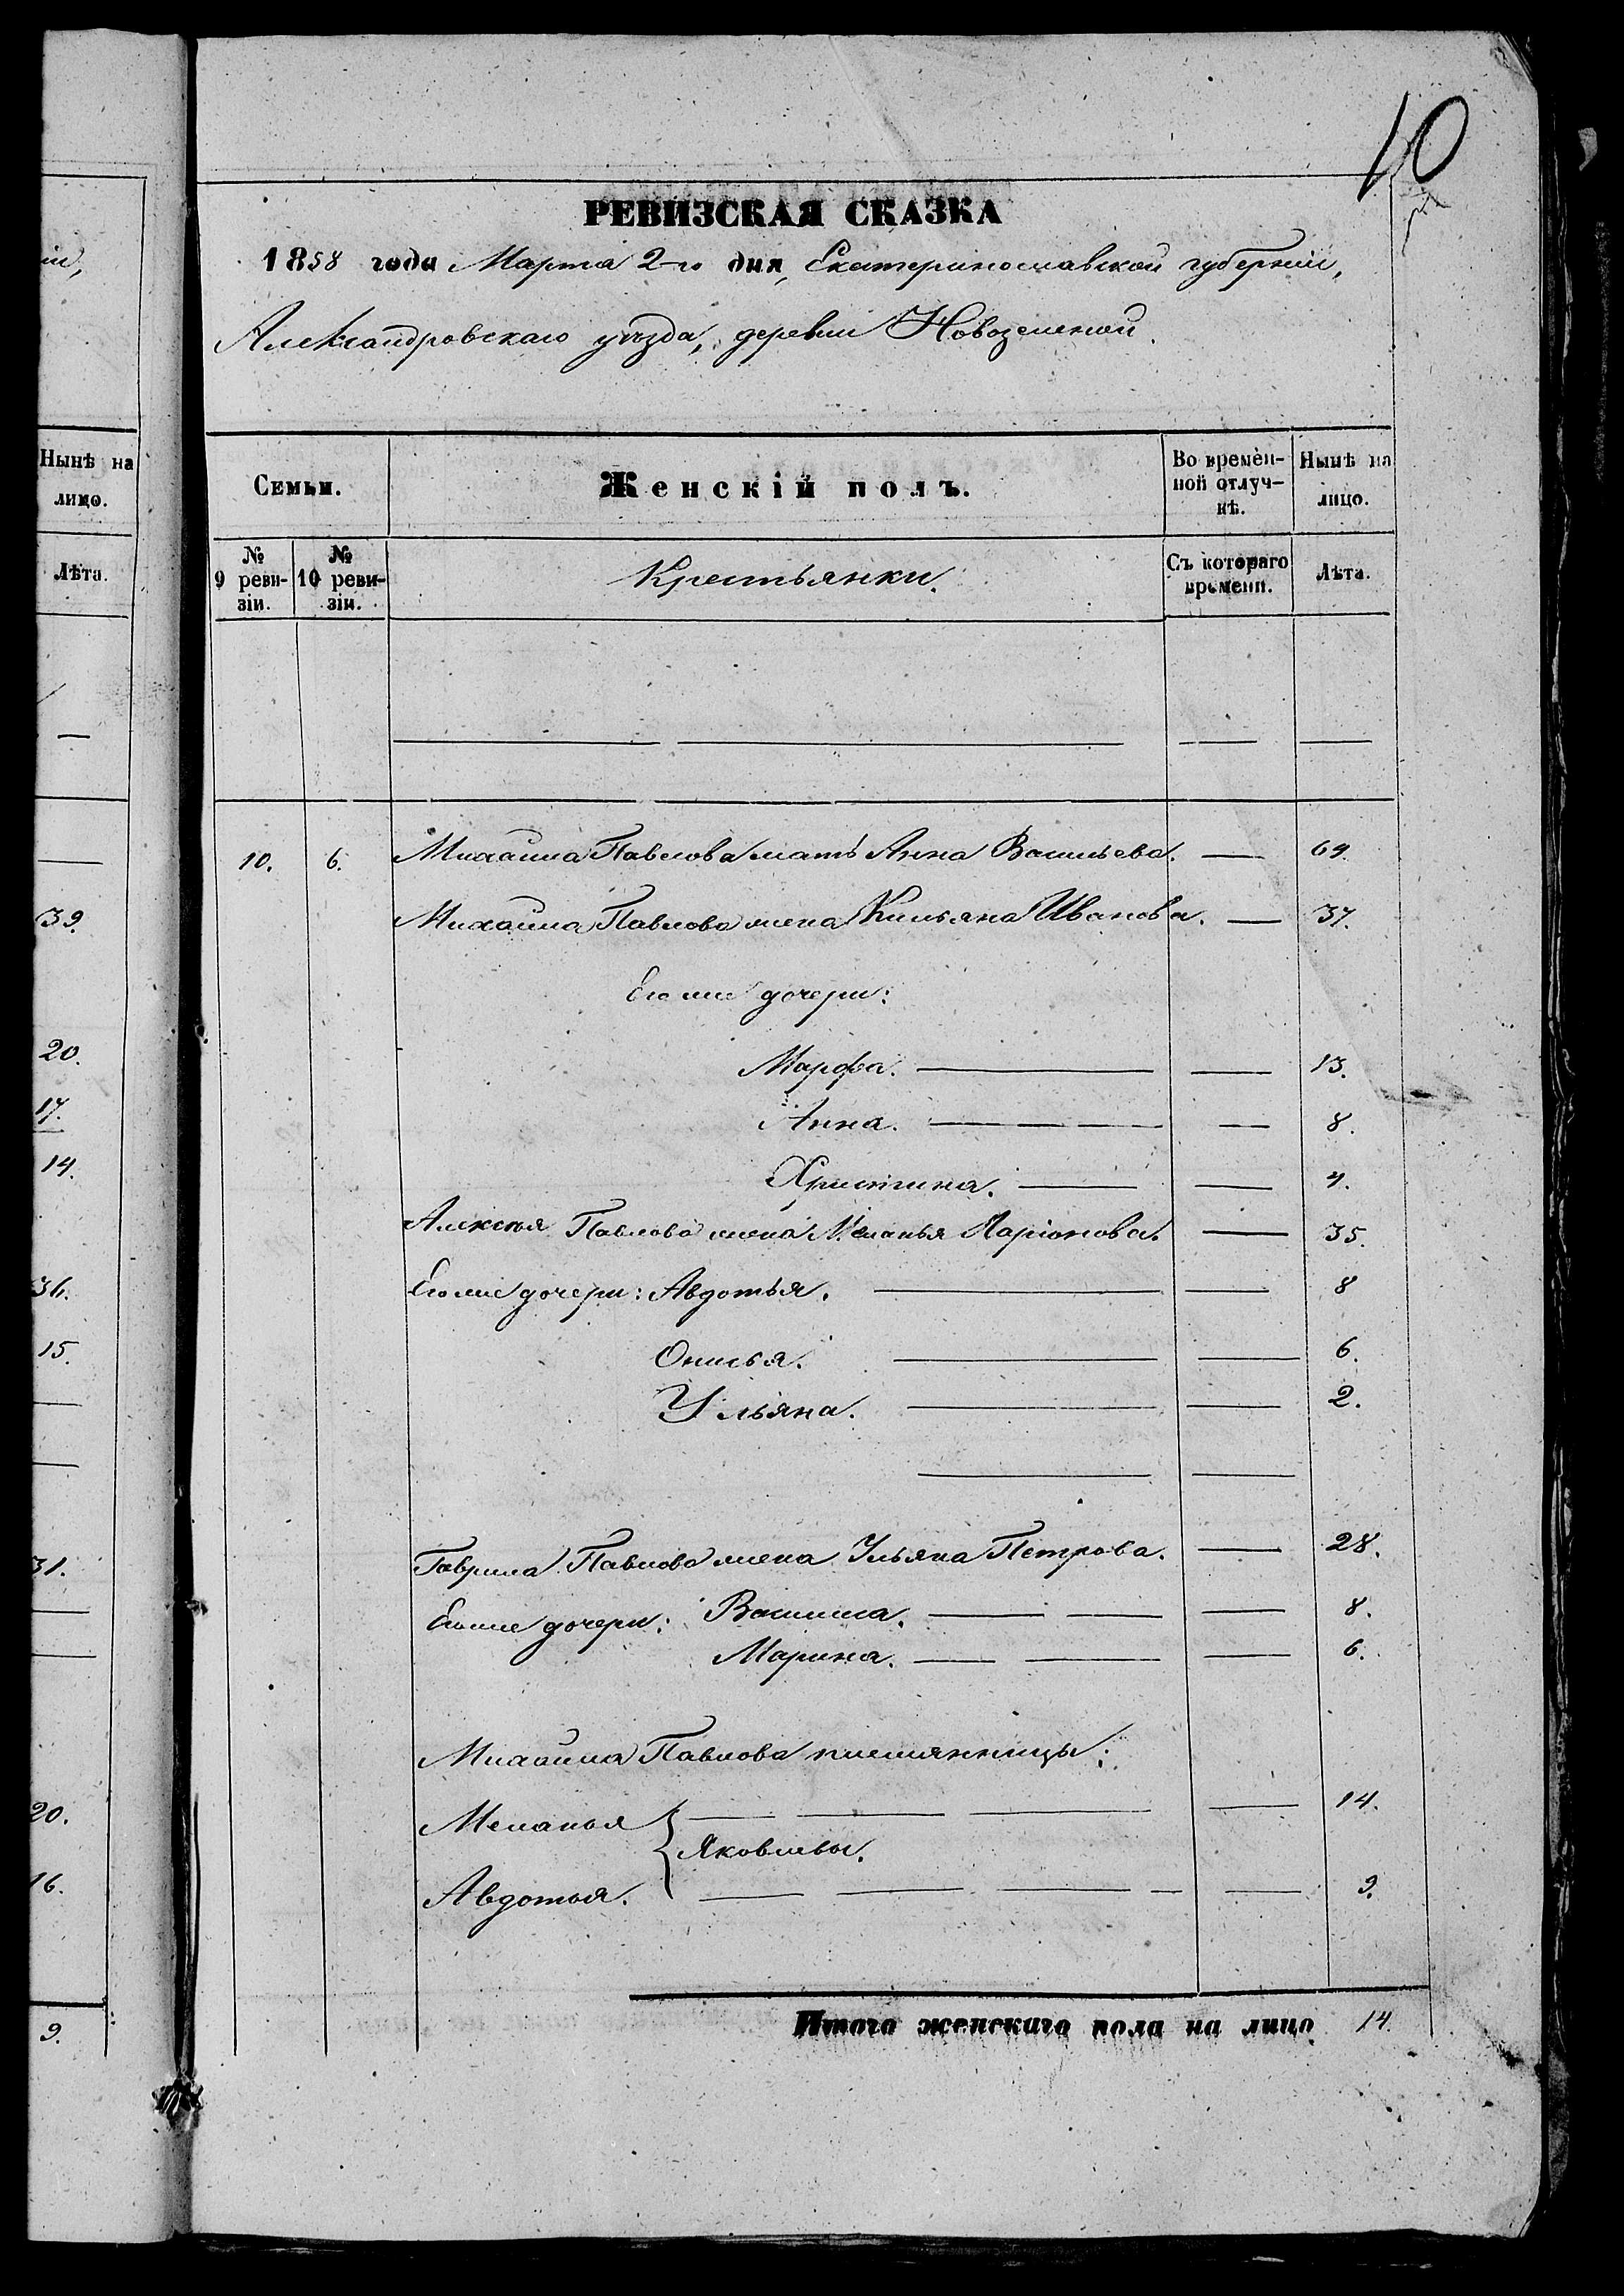 10
РЕВИЗСКАЯ СКАЗКА
1858 года Марта 2-го дня, Екатеринославской губерніи,
Александровскаго уѣзда, деревни Новоземской.
Семьи.
Женскій полъ.
Во времен-
ной отлуч-
кѣ.
Нынѣ на
лицо.
№
9 реви-
зіи.
№
10 реви-
зіи.
Крестьянки.
Съ котораго
времени.
Лѣта.
10. 6. Михаила Павлова мать Анна Васильева. 69.
Михаила Павлова жена Кильяна Иванова. 37.
Его же дочери:
Марфа. 13.
Анна. 8.
Христина. 4.
Алексѣя Павлова жена Меланья Ларіонова. 35.
Его же дочери: Авдотья. 8
Онисья. 6.
Ульяна. 2.
Гаврила Павлова жена Ульяна Петрова. 28.
Его же дочери: Василиса. 8.
Марина. 6.
Михаила Павлова племянницы:
Меланья 14.
Яковлевы.
Авдотья. 9.
Итого женскаго пола на лицо 14.
Нынѣ на
лицо.
Лѣта.
39.
20.
17.
14.
36.
15.
31.
20.
16.
9.